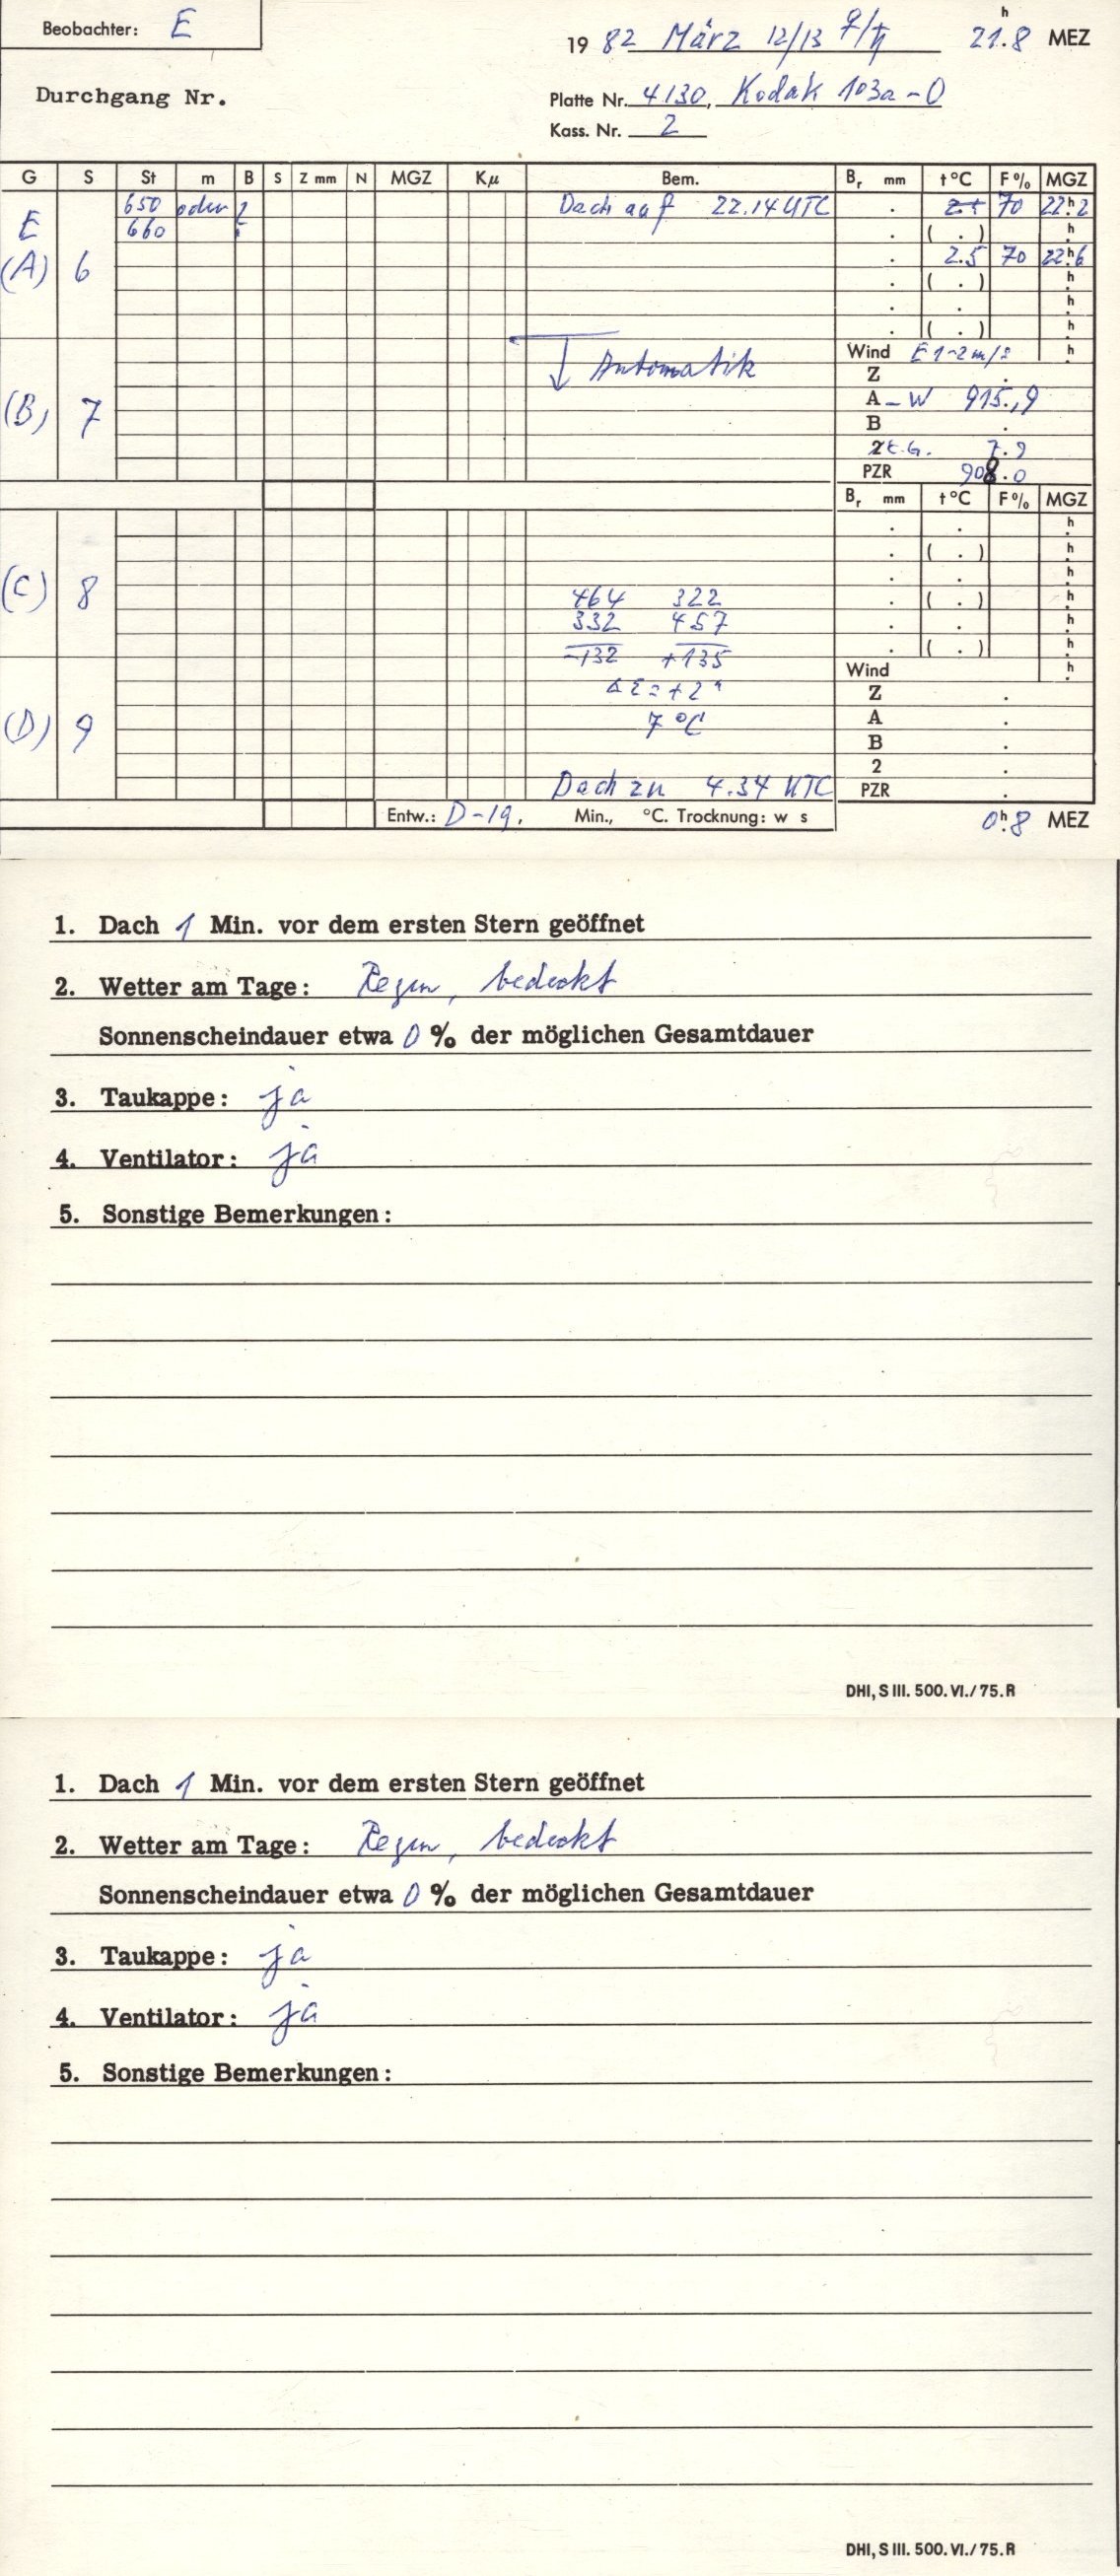 Beobachter: E
19 82 März 12/13 ♀/♄ 21.8 h MEZ
Durchgang Nr.
Platte Nr. 4130, Kodak 103a-O
Kass. Nr. 2
G S St m B S Z mm N MGZ Kμ Bem. Br mm t°C F% MGZ
650 oder ? Dach auf 22.14 UTC . 70 22h.2
E 660 . ( . ) h
(A) 6 . 2.5 70 22h.6
. ( . ) h
. . h
. ( . ) h
Automatik Wind E 1-2 m/s h
Z .
(B) 7 A - W 915.9
B .
2 t.G. 7.9
PZR 908.0
Br mm t°C F% MGZ
. . h
. ( . ) h
. . h
(C) 8 464 322 . ( . ) h
332 457 . . h
-132 +135 . ( . ) h
Wind h
ΔΣ=+2 Z .
(D) 9 7 °C A .
B .
2 .
Dach zu 4.34 UTC PZR .
Entw.: D-19. Min., °C. Trocknung: w s 0h.8 MEZ
1. Dach 1 Min. vor dem ersten Stern geöffnet
2. Wetter am Tage: Regen, bedeckt
Sonnenscheindauer etwa 0 % der möglichen Gesamtdauer
3. Taukappe: ja
4. Ventilator: ja
5. Sonstige Bemerkungen:
DHI, S III. 500. VI./75. R
1. Dach 1 Min. vor dem ersten Stern geöffnet
2. Wetter am Tage: Regen, bedeckt
Sonnenscheindauer etwa 0 % der möglichen Gesamtdauer
3. Taukappe: ja
4. Ventilator: ja
5. Sonstige Bemerkungen:
DHI, S III. 500. VI./75. R